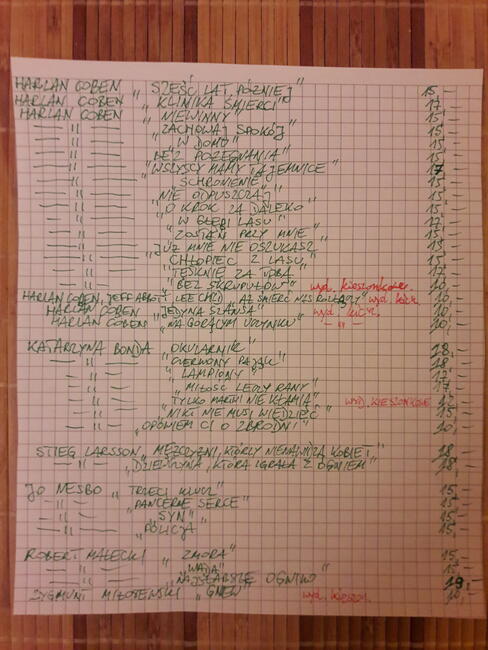 HARLAN COBEN „SZEŚĆ LAT PÓŹNIEJ" 15,-
HARLAN COBEN „KLINIKA ŚMIERCI" 17,-
HARLAN COBEN „NIEWINNY" 15,-
— " — „ZACHOWAJ SPOKÓJ" 15,-
— " — „W DOMU" 15,-
— " — „BEZ POŻEGNANIA" 15,-
— " — „WSZYSCY MAMY TAJEMNICE" 17,-
— " — „SCHRONIENIE" 15,-
— " — „NIE ODPUSZCZAJ" 15,-
— " — „O KROK ZA DALEKO" 15,-
— " — „W GŁĘBI LASU" 17,-
— " — „ZOSTAŃ PRZY MNIE" 15,-
— " — „JUŻ MNIE NIE OSZUKASZ" 15,-
— " — „CHŁOPIEC Z LASU" 15,-
— " — „TĘSKNIĘ ZA TOBĄ" 17,-
— " — „BEZ SKRUPUŁÓW" wyd. kieszonkowe 10,-
HARLAN COBEN, JEFF ABBOTT, LEE CHILD „AŻ ŚMIERĆ NAS ROZŁĄCZY" wyd. kiesz. 10,-
HARLAN COBEN „JEDYNA SZANSA" wyd. kiesz. 10,-
HARLAN COBEN „NA GORĄCYM UCZYNKU" — " — 10,-
KATARZYNA BONDA „OKULARNIK" 18,-
— " — „CZERWONY PAJĄK" 18,-
— " — „LAMPIONY" 17,-
— " — „MIŁOŚĆ LECZY RANY" 17,-
— " — „TYLKO MARTWI NIE KŁAMIĄ" wyd. kieszonkowe 12,-
— " — „NIKT NIE MUSI WIEDZIEĆ" 15,-
— " — „OPOWIEM CI O ZBRODNI" 10,-
STIEG LARSSON „MĘŻCZYŹNI, KTÓRZY NIENAWIDZĄ KOBIET" 18,-
— " — „DZIEWCZYNA, KTÓRA IGRAŁA Z OGNIEM" 18,-
JO NESBO „TRZECI KLUCZ" 15,-
— " — „PANCERNE SERCE" 15,-
— " — „SYN" 15,-
— " — „POLICJA" 15,-
ROBERT MAŁECKI „ZMORA" 15,-
— " — „WADA" 15,-
— " — „NAJSŁABSZE OGNIWO" 19,-
ZYGMUNT MIŁOSZEWSKI „GNIEW" wyd. kieszon. 10,-